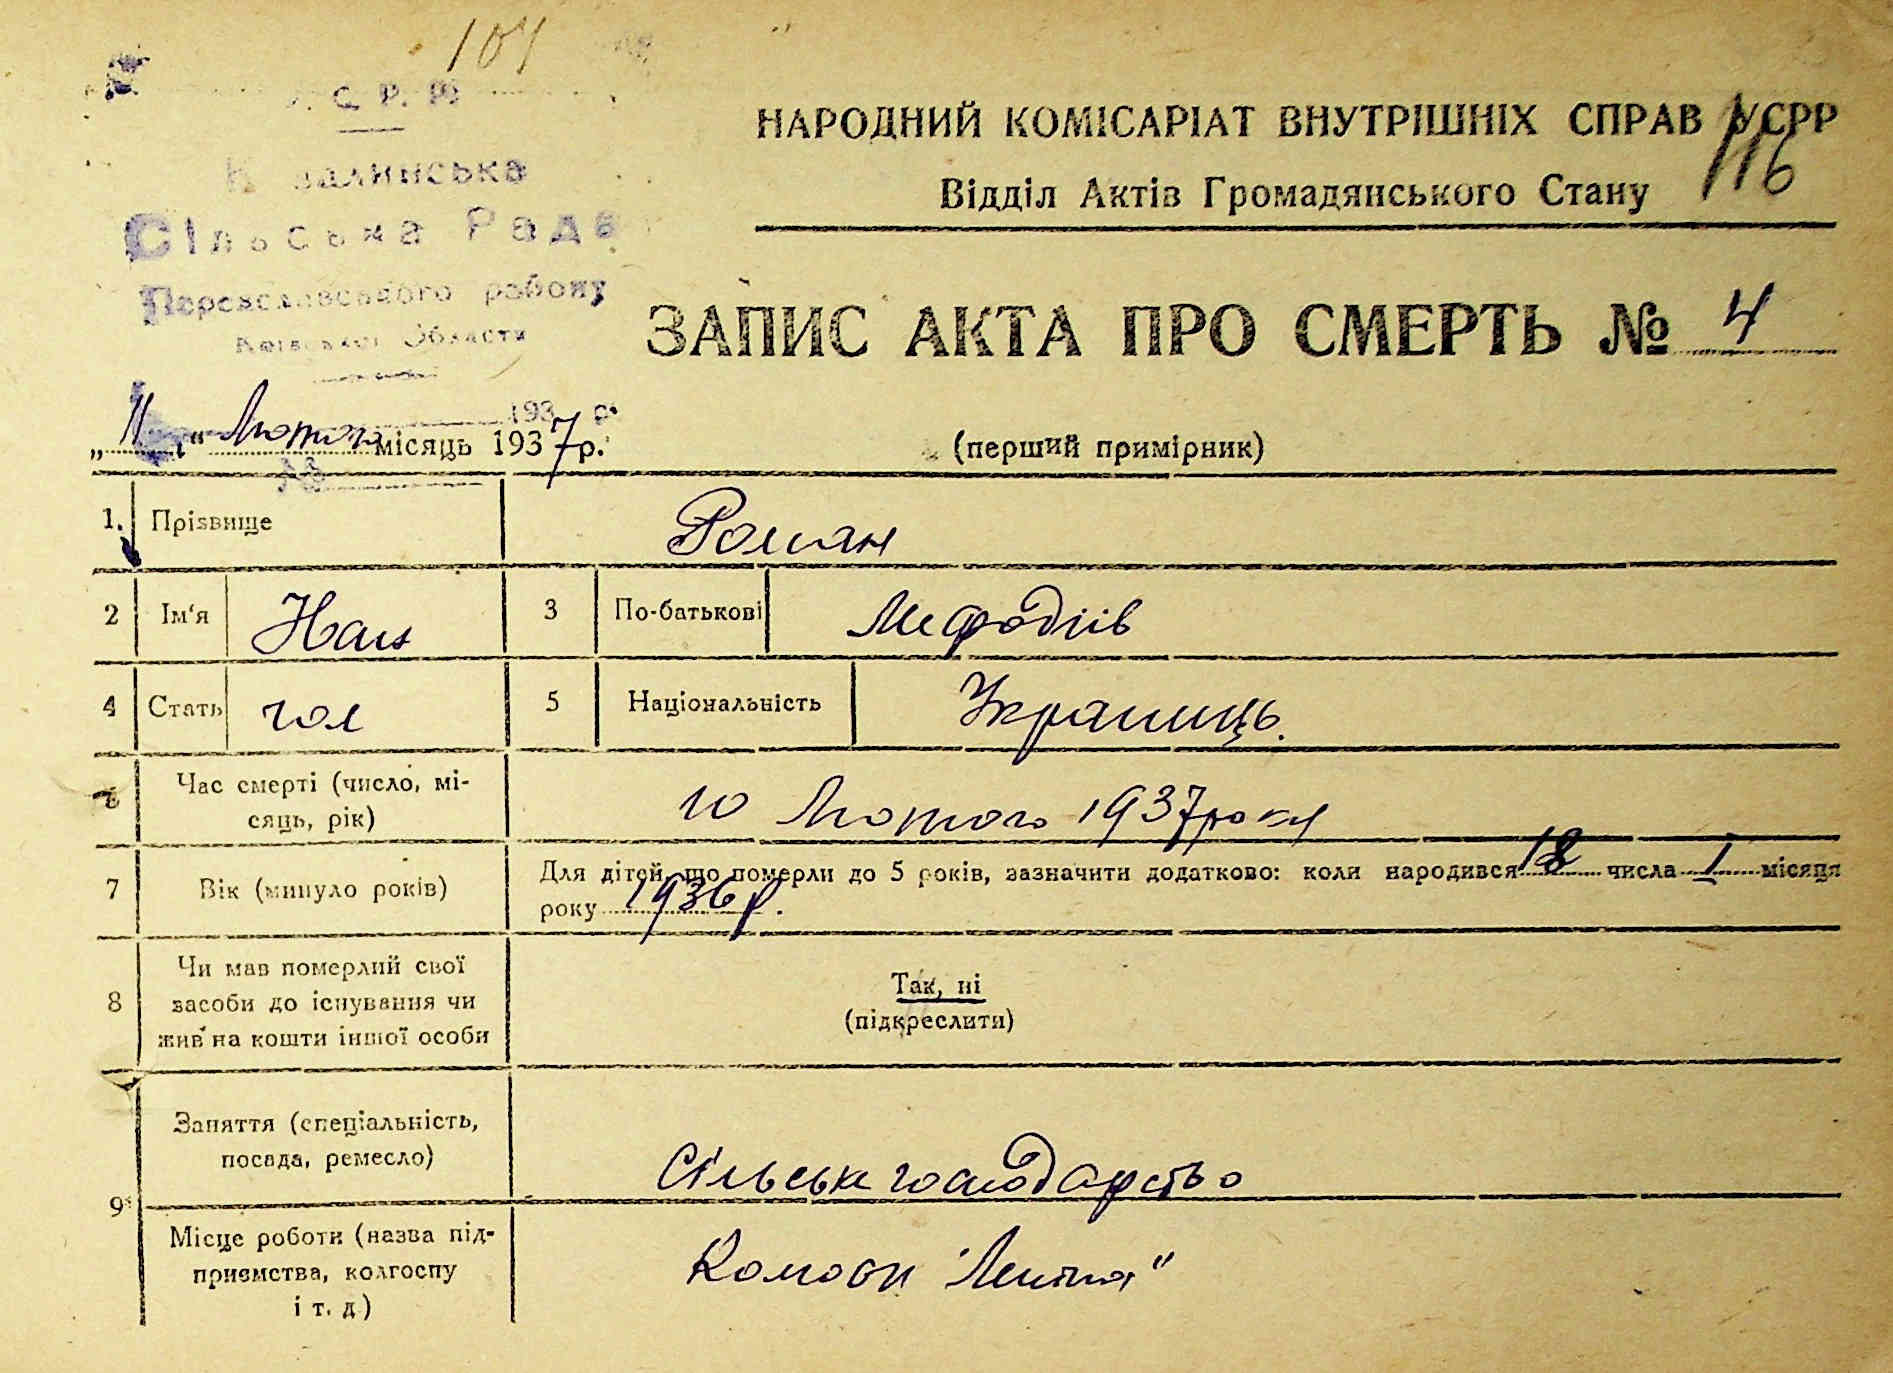 104
С. Р. Р.
Сільська Рада
Переяславського району
Київської Области
НАРОДНИЙ КОМІСАРІАТ ВНУТРІШНІХ СПРАВ УСРР
116
Відділ Актів Громадянського Стану
ЗАПИС АКТА ПРО СМЕРТЬ № 4
193 р.
„11“ Лютого місяць 1937 р.
(перший примірник)
1. Прізвище Роман
2 Ім'я 3 По-батькові Мефодіів
4 Стать чол 5 Національність Украинць.
6 Час смерті (число, мі-
сяць, рік) 10 Лютого 1937 року
7 Вік (минуло років) Для дітей, що померли до 5 років, зазначити додатково: коли народився 18 числа 1 місяця
року 1936 р.
8 Чи мав померлий свої
засоби до існування чи
жив на кошти іншої особи
Так, ні
(підкреслити)
9 Заняття (спеціальність,
посада, ремесло) Сільське господарство
Місце роботи (назва під-
приємства, колгоспу
і т. д.)
Колгосп "Леніна"